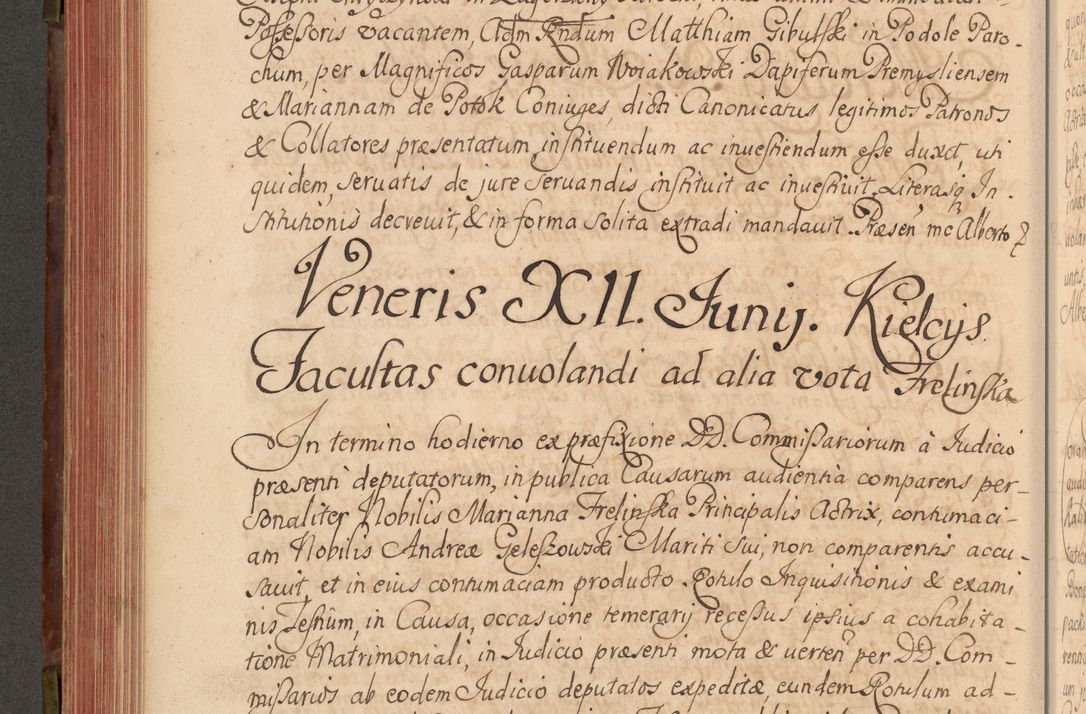 Possessoris vacantem, Adm Rndum Matthiam Gibulski in Podole Paro-
chum, per Magnificos Gasparum Woiakowski Dapiferum Premysliensem
& Mariannam de Potok Coniuges, dicti Canonicatus legitimos Patronos
& Collatores præsentatum, instituendum ac inuestiendum esse duxit, uti
quidem, servatis de jure servandis instituit ac inuestiuit. Literasq In-
stitutionis decrevit, & in forma solita extradi mandauit. Præsen me Alberto
Veneris XII. Junij. Kielcijs.
Facultas conuolandi ad alia vota Frelinska
In termino hodierno ex præfixione DD. Commissariorum à Judicio
præsenti deputatorum, in publica Causarum audientia comparens per-
sonaliter Nobilis Marianna Frelinska Principalis Actrix, contumaci-
am Nobilis Andreæ Geleszowski Mariti sui, non comparentis accu-
savit, et in eius contumaciam producto Rotulo Inquisitionis & exami
nis Testium, in Causa, occasione temerarij recessus ipsius a cohabita-
tione Matrimoniali, in Judicio præsenti mota & verten per DD. Com-
missarios ab eodem Judicio deputatos expeditæ, eundem Rotulum ad-